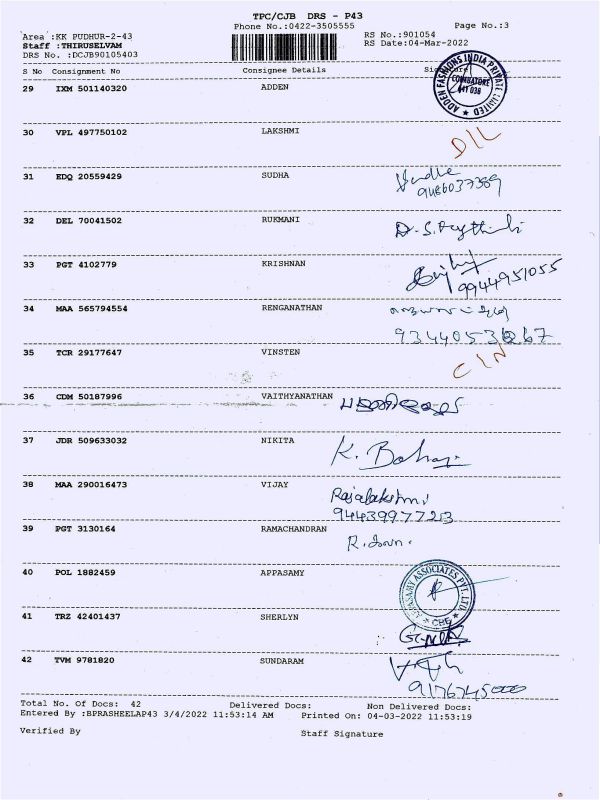 TPC/CJB DRS - P43
Phone No.:0422-3505555 Page No.:3
Area :KK PUDHUR-2-43 RS No.:901054
Staff :THIRUSELVAM RS Date:04-Mar-2022
DRS No. :DCJB90105403
S No Consignment No Consignee Details
29 IXM 501140320 ADDEN
ADDEN FASHIONS INDIA PRIVATE LIMITED
COIMBATORE
641 038
30 VPL 497750102 LAKSHMI
D/L
31 EDQ 20559429 SUDHA
32 DEL 70041502 RUKMANI
33 PGT 4102779 KRISHNAN
9944951055
34 MAA 565794554 RENGANATHAN
35 TCR 29177647 VINSTEN
C/N
36 CDM 50187996 VAITHYANATHAN
37 JDR 509633032 NIKITA
K.
38 MAA 290016473 VIJAY
Rajalakshmi
9443997723
39 PGT 3130164 RAMACHANDRAN
40 POL 1882459 APPASAMY
APPASAMY ASSOCIATES PVT. LTD.
CBE
41 TRZ 42401437 SHERLYN
42 TVM 9781820 SUNDARAM
9176745000
Total No. Of Docs: 42 Delivered Docs: Non Delivered Docs:
Entered By :BPRASHEELAP43 3/4/2022 11:53:14 AM Printed On: 04-03-2022 11:53:19
Verified By Staff Signature